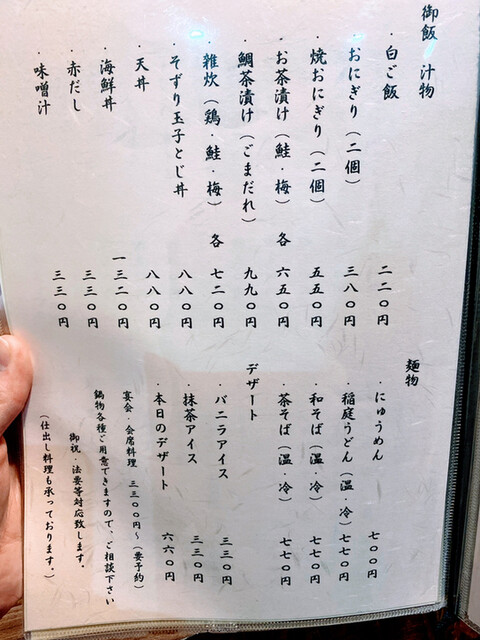 御飯 汁物
・白ご飯 二二〇円
・おにぎり（二個） 三八〇円
・焼おにぎり（二個） 五五〇円
・お茶漬け（鮭・梅） 各 六五〇円
・鯛茶漬け（ごまだれ） 九九〇円
・雑炊（鶏・鮭・梅） 各 七二〇円
・そずり玉子とじ丼 八八〇円
・天丼 八八〇円
・海鮮丼 一三二〇円
・赤だし 三三〇円
・味噌汁 三三〇円
麺物
・にゅうめん 七〇〇円
・稲庭うどん（温・冷） 七七〇円
・和そば（温・冷） 七七〇円
・茶そば（温・冷） 七七〇円
デザート
・バニラアイス 三三〇円
・抹茶アイス 三三〇円
・本日のデザート 六六〇円
宴会・会席料理 三三〇〇円～（要予約）
鍋物各種ご用意できますので、ご相談下さい
御祝・法要等対応致します。
（仕出し料理も承っております。）